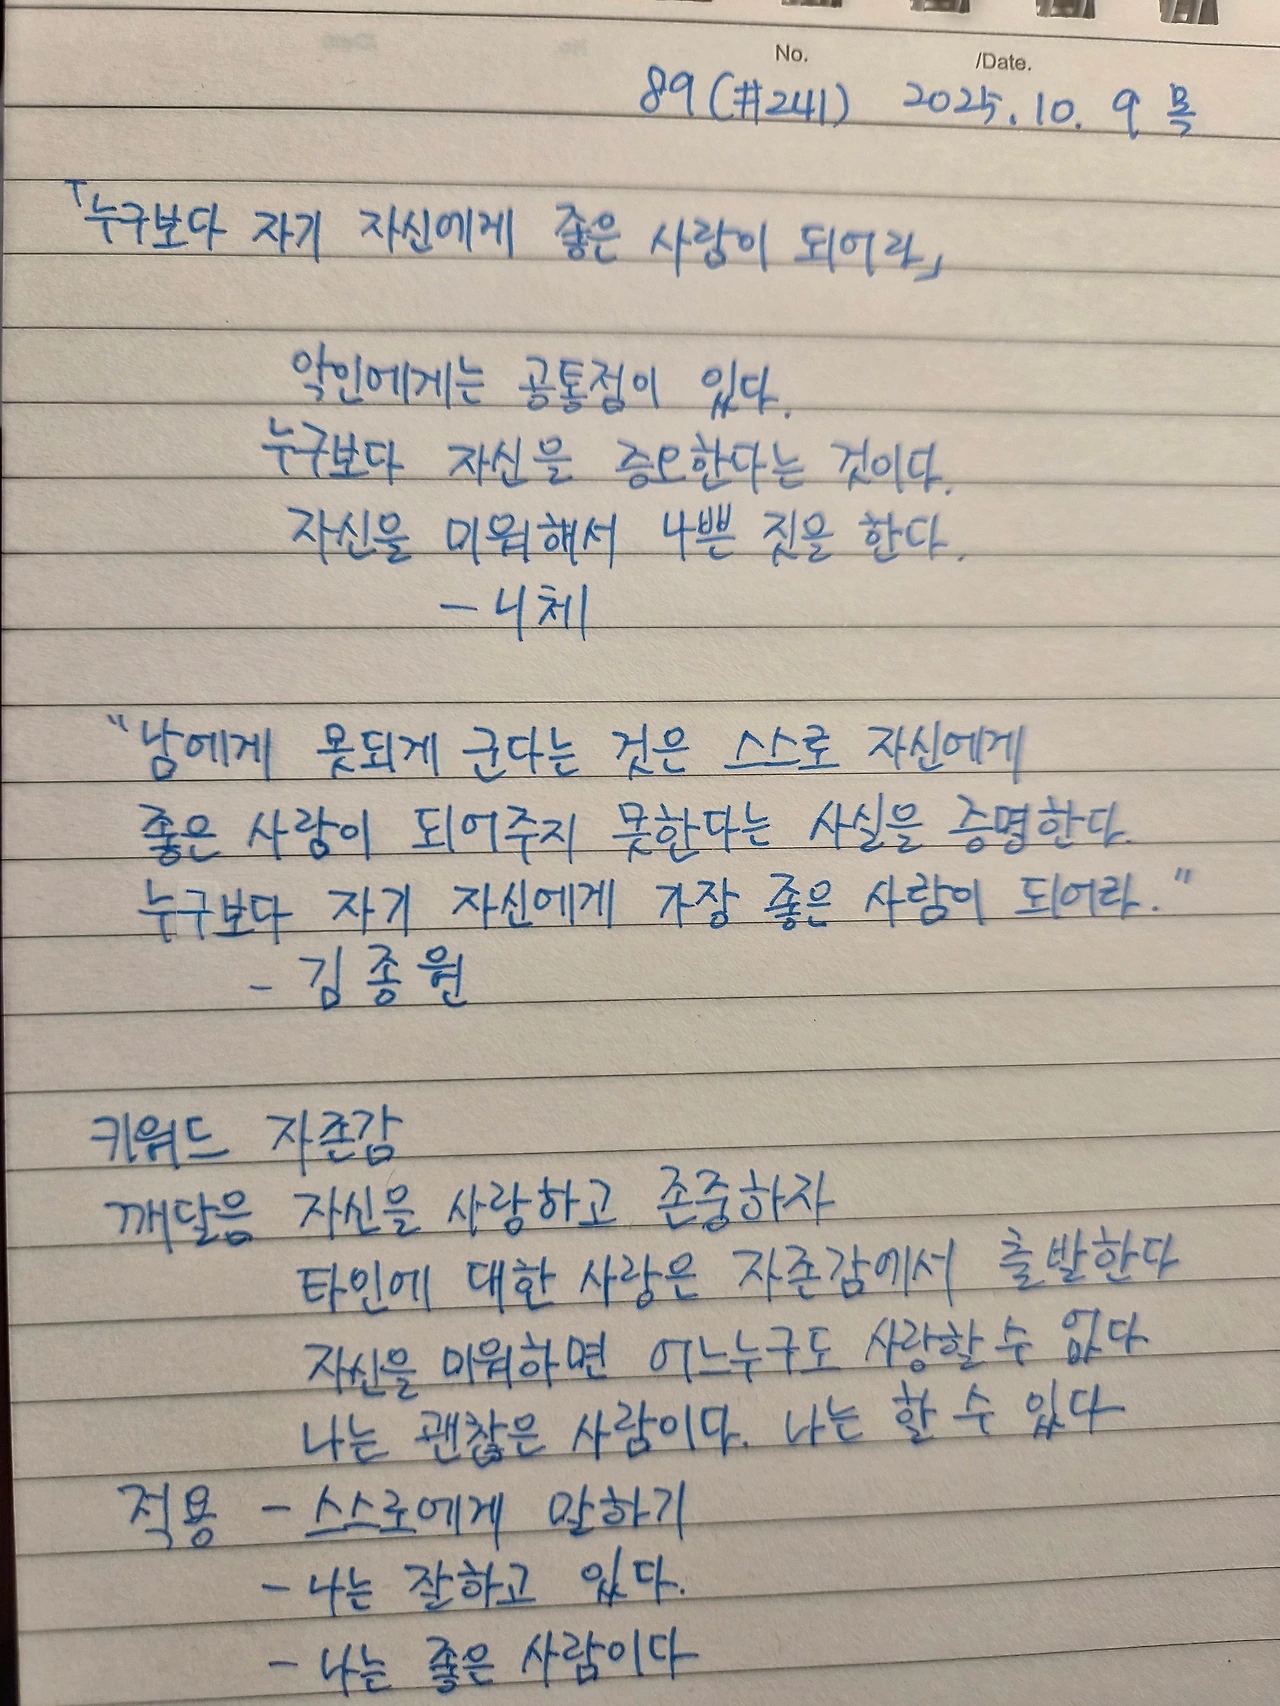 No. /Date.
89(#241) 2025.10.9 목
「누구보다 자기 자신에게 좋은 사람이 되어라」
악인에게는 공통점이 있다.
누구보다 자신을 증오한다는 것이다.
자신을 미워해서 나쁜 짓을 한다.
- 니체
"남에게 못되게 군다는 것은 스스로 자신에게
좋은 사람이 되어주지 못한다는 사실을 증명한다.
누구보다 자기 자신에게 가장 좋은 사람이 되어라."
- 김종원
키워드 자존감
깨달음 자신을 사랑하고 존중하자
타인에 대한 사랑은 자존감에서 출발한다
자신을 미워하면 어느누구도 사랑할 수 없다
나는 괜찮은 사람이다. 나는 할 수 있다
적용 - 스스로에게 말하기
- 나는 잘하고 있다.
- 나는 좋은 사람이다